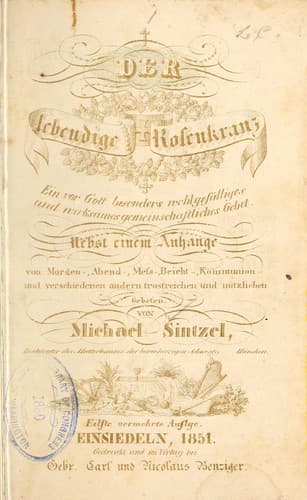 DER
lebendige Rosenkranz
Ein vor Gott besonders wohlgefälliges
und wirksames gemeinschaftliches Gebet.
Nebst einem Anhange
von Morgen-, Abend-, Mess-, Beicht-, Kommunion-
und verschiedenen andern trostreichen und nützlichen
Gebeten.
VON
Michael Sintzel,
Beichtvater des Mutterhauses der barmherzigen Schwest. München.
Eilfte vermehrte Auflge.
EINSIEDELN, 1851.
Gedruckt und im Verlag bei
Gebr. Carl und Nicolaus Benziger.